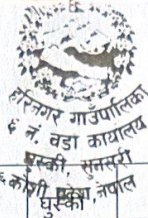 हरिनगर गाउँपालिका
६ नं. वडा कार्यालय
घुस्की, सुनसरी
कोशी प्रदेश, नेपाल
घुस्की